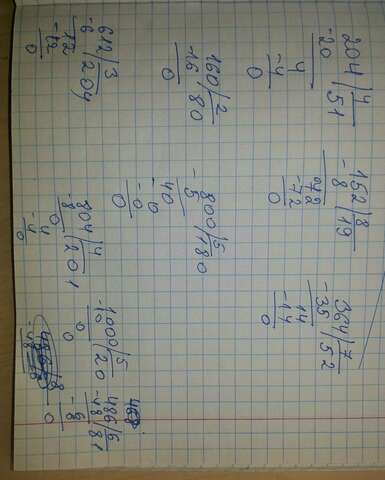 204 4
-20 51
4
-4
0
152 8
-8 19
72
-72
0
364 7
-35 52
14
-14
0
160 2
-16 80
0
800 5
-5 180
40
0
-0
0
612 3
-6 204
12
-12
0
804 4
-8 201
0
4
-4
0
1000 5
-10 20
0
0
486 6
-48 81
6
-6
0